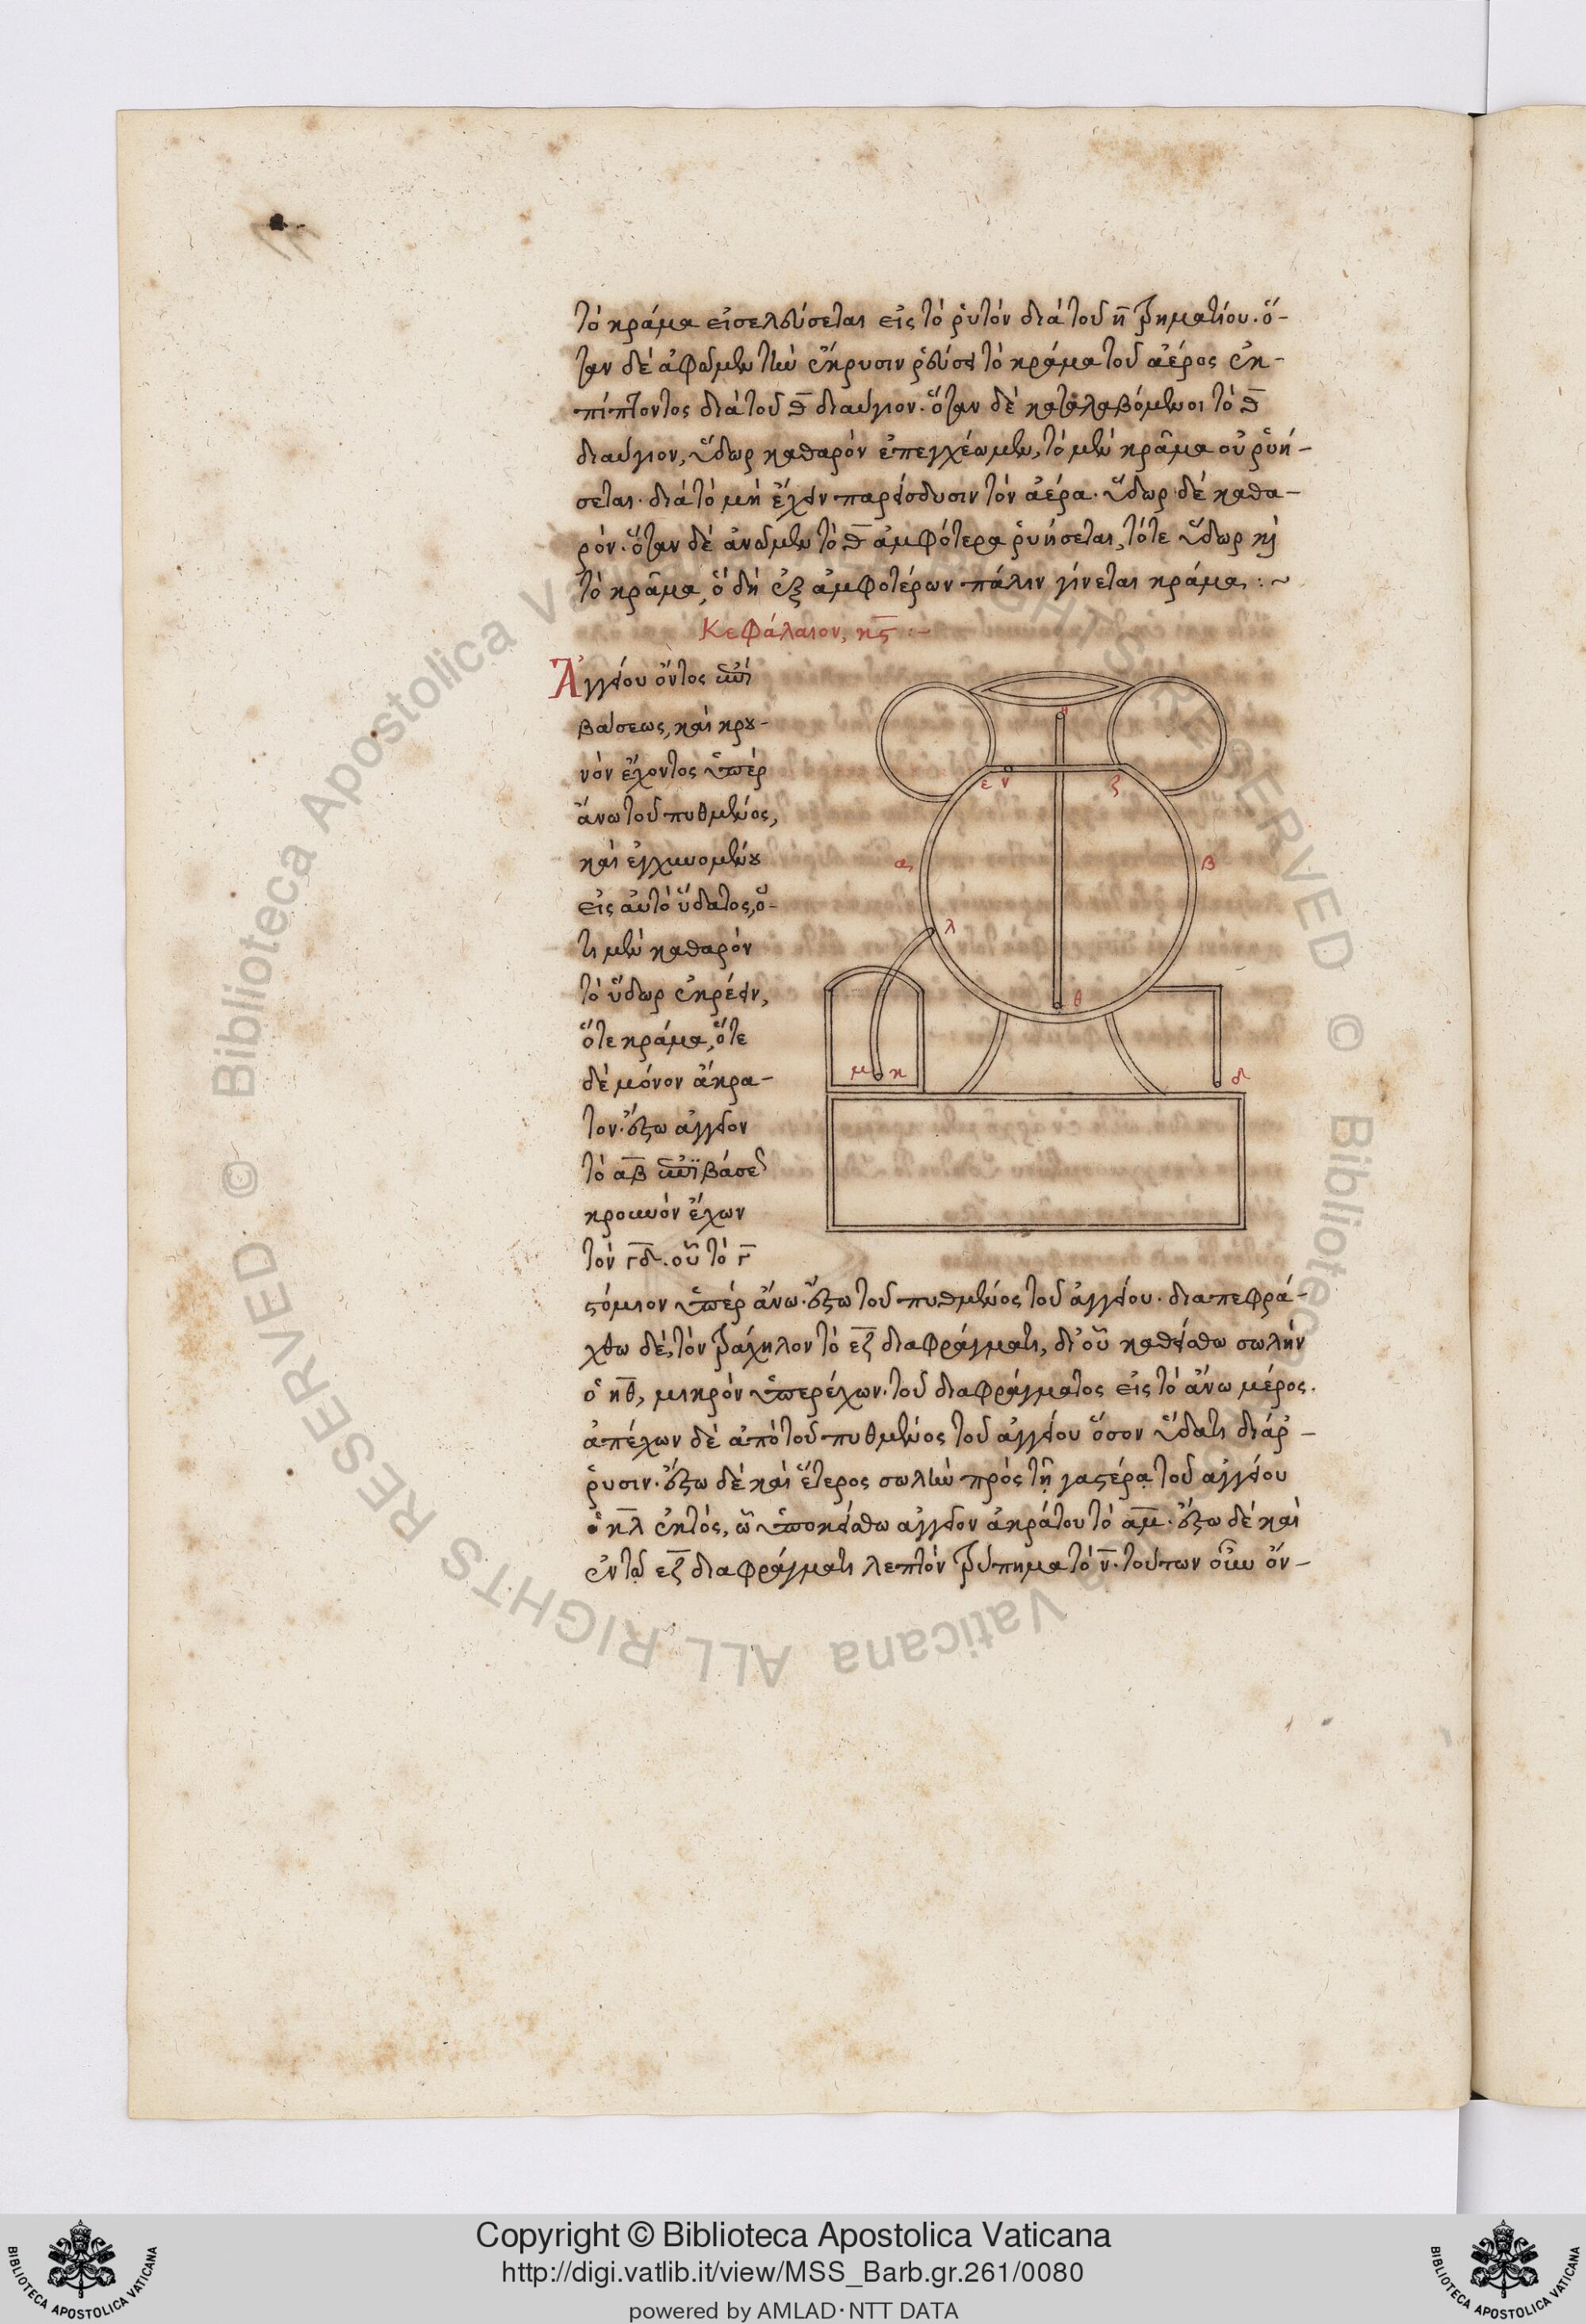 τὸ κράμα εἰσελεύσεται εἰς τὸ ῥυτὸν διὰ τοῦ η̅ τρηματίου. ὅ-
ταν δὲ ἀφῶμεν τὴν ἔκρυσιν ῥεύσει τὸ κράμα τοῦ ἀέρος ἐκ-
πίπτοντος διὰ τοῦ θ̅ διαύγιον. ὅταν δὲ καταλαβόμενοι τὸ θ̅
διαύγιον, ὕδωρ καθαρὸν ἐπεγχέωμεν, τὸ μὲν κρᾶμα οὐ ῥυή-
σεται. διὰ τὸ μὴ ἔχειν παρείσδυσιν τὸν ἀέρα. ὕδωρ δὲ καθα-
ρόν. ὅταν δὲ ἀνῶμεν τὸ θ̅ ἀμφότερα ῥυήσεται, τότε ὕδωρ κὶ
τὸ κρᾶμα, ὃ δὴ ἐξ ἀμφοτέρων πάλιν γίνεται κράμα :~
Κεφάλαιον, κς̅ :-
Ἀγγείου ὄντος ἐπὶ
βάσεως, καὶ κρου-
νὸν ἔχοντος ὑπὲρ
ἄνω τοῦ πυθμένος,
καὶ ἐγχυνομένου
εἰς αὐτὸ ὕδατος, ὅ-
τι μὲν καθαρὸν
τὸ ὕδωρ ἐκρέειν,
ὅτε κράμα, ὅτε
δὲ μόνον ἄκρα-
τον. ἔστω ἀγγεῖον
τὸ α̅β̅ ἐπὶ βάσεως
κρουνὸν ἔχων
τὸν γ̅δ̅. οὗ τὸ γ̅
στόμιον ὑπὲρ ἄνω. ἔστω τοῦ πυθμένος τοῦ ἀγγείου. διαπεφρά-
χθω δὲ, τὸν τράχηλον τὸ ε̅ζ̅ διαφράγματι, δι' οὗ καθείσθω σωλὴν
ὁ η̅θ̅, μικρὸν ὑπερέχων. τοῦ διαφράγματος εἰς τὸ ἄνω μέρος.
ἀπέχων δὲ ἀπὸ τοῦ πυθμένος τοῦ ἀγγείου ὅσον ὕδατι διάρ-
ρυσιν. ἔστω δὲ καὶ ἕτερος σωλὴν πρὸς τῇ γαστέρα τοῦ ἀγγείου
ὁ κ̅λ̅ ἐκτὸς, ᾧ ὑποκείσθω ἀγγεῖον ἀκράτου τὸ α̅μ̅. ἔστω δὲ καὶ
ἐν τῷ ε̅ζ̅ διαφράγματι λεπτὸν τρύπημα τὸ ν̅. τούτων οὖν ὄν-
η
ε ν ζ
α β
λ
θ
μ κ δ
Copyright © Biblioteca Apostolica Vaticana
http://digi.vatlib.it/view/MSS_Barb.gr.261/0080
powered by AMLAD·NTT DATA
BIBLIOTECA APOSTOLICA VATICANA
BIBLIOTECA APOSTOLICA VATICANA
© Biblioteca Apostolica Vaticana ALL RIGHTS RESERVED